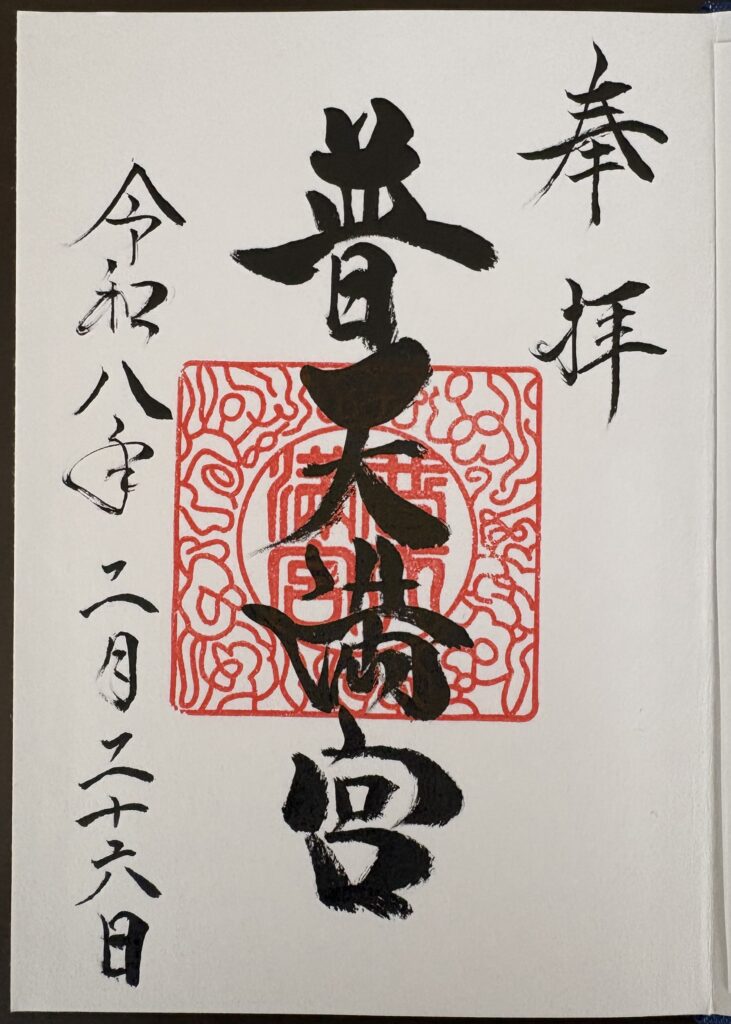 奉拝
普天満宮
令和八年二月二十六日